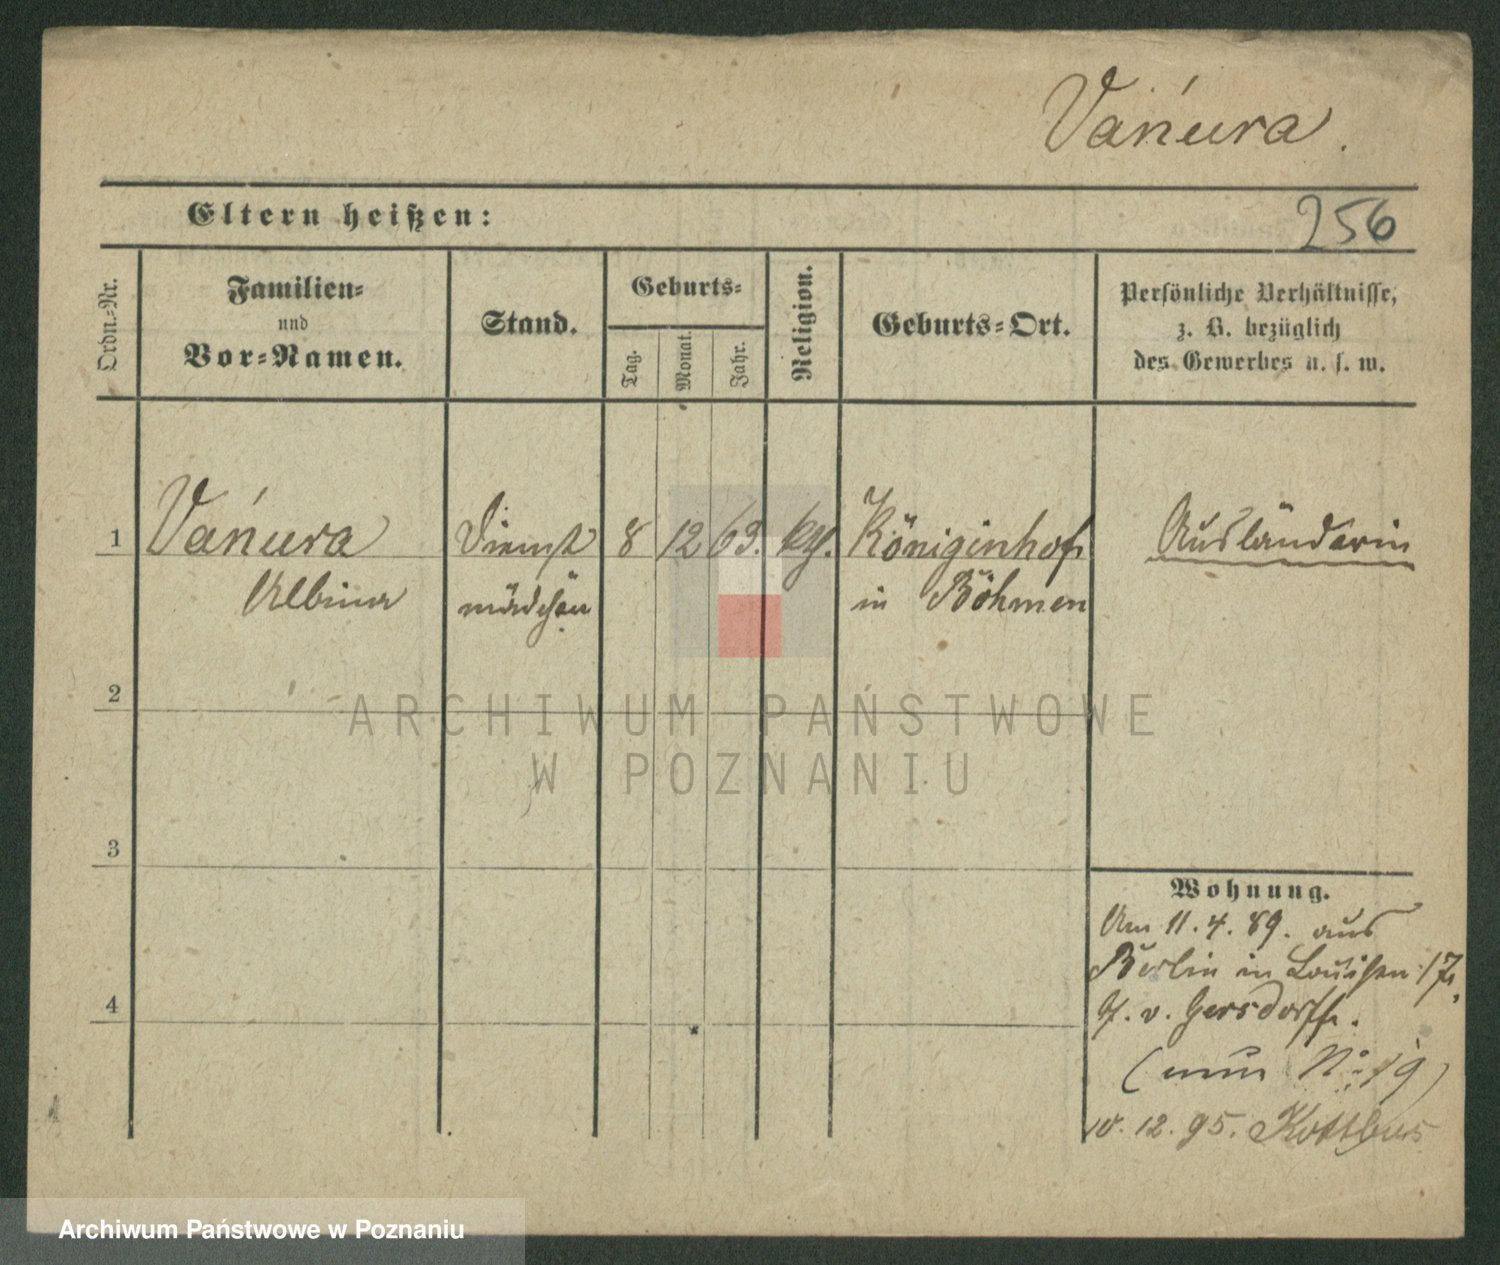 Vańura.
Eltern heißen:
256
Ordn.-Nr.
Familien-
und
Vor-Namen.
Stand.
Geburts-
Tag.
Monat.
Jahr.
Religion.
Geburts-Ort.
Persönliche Verhältnisse,
z. B. bezüglich
des Gewerbes u. s. w.
1 Vańura Dienst 8 12 63. Königinhof Ausländerin
Albina mädchen in Böhmen
2
ARCHIWUM PAŃSTWOWE
W POZNANIU
3
Wohnung.
Am 11.4.89. aus
Berlin in Louisen 17,
b. v. Gersdorff.
4
(nun No 19)
10.12.95. Kottbus
Archiwum Państwowe w Poznaniu